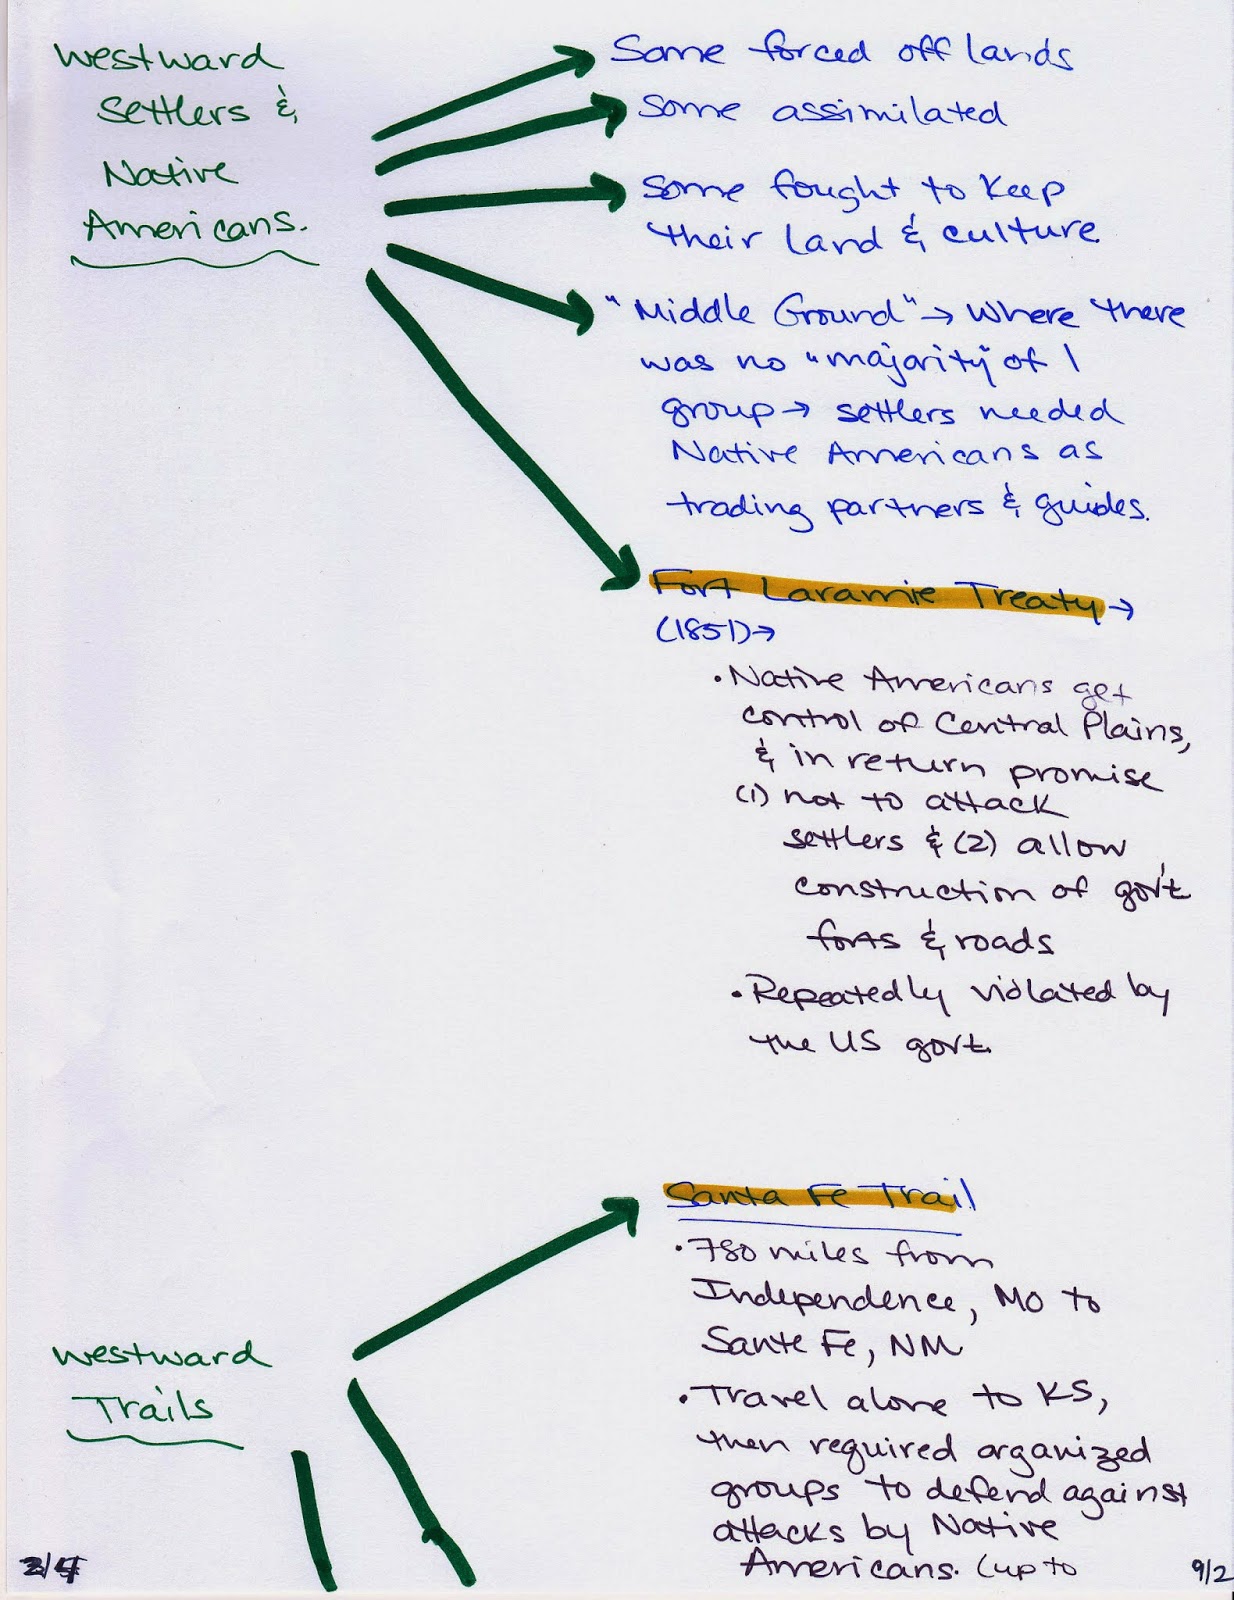 Westward
Settlers &
Native
Americans.
Some forced off lands
Some assimilated
Some fought to keep
their land & culture.
"Middle Ground" → Where there
was no "majority" of 1
group → settlers needed
Native Americans as
trading partners & guides.
Fort Laramie Treaty →
(1851) →
• Native Americans get
control of Central Plains,
& in return promise
(1) not to attack
settlers & (2) allow
construction of gov't
forts & roads
• Repeatedly violated by
the US govt.
Westward
Trails
Santa Fe Trail
• 780 miles from
Independence, MO to
Sante Fe, NM
• Travel alone to KS,
then required organized
groups to defend against
attacks by Native
Americans. (up to
9/2